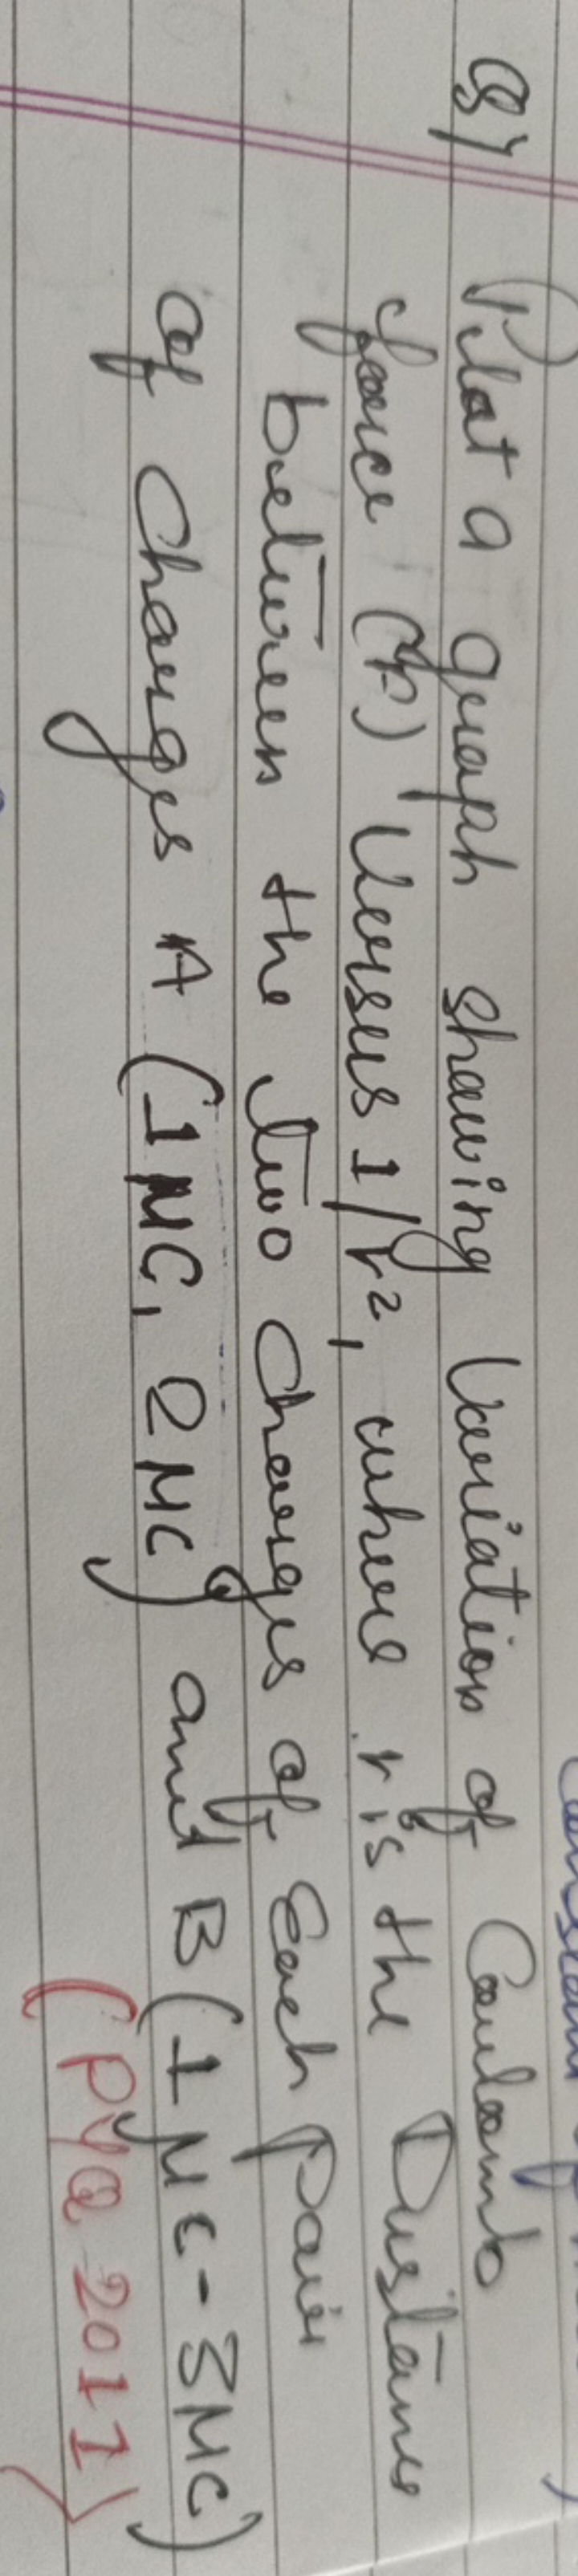 Q) Plot a graph showing Variation of Coulomb
force (F) Versus 1/r², where r is the Distance
between the two charges of Each pair
of Charges A (1μC, 2μC) and B (1μC - 3μC)
(PYQ 2011)